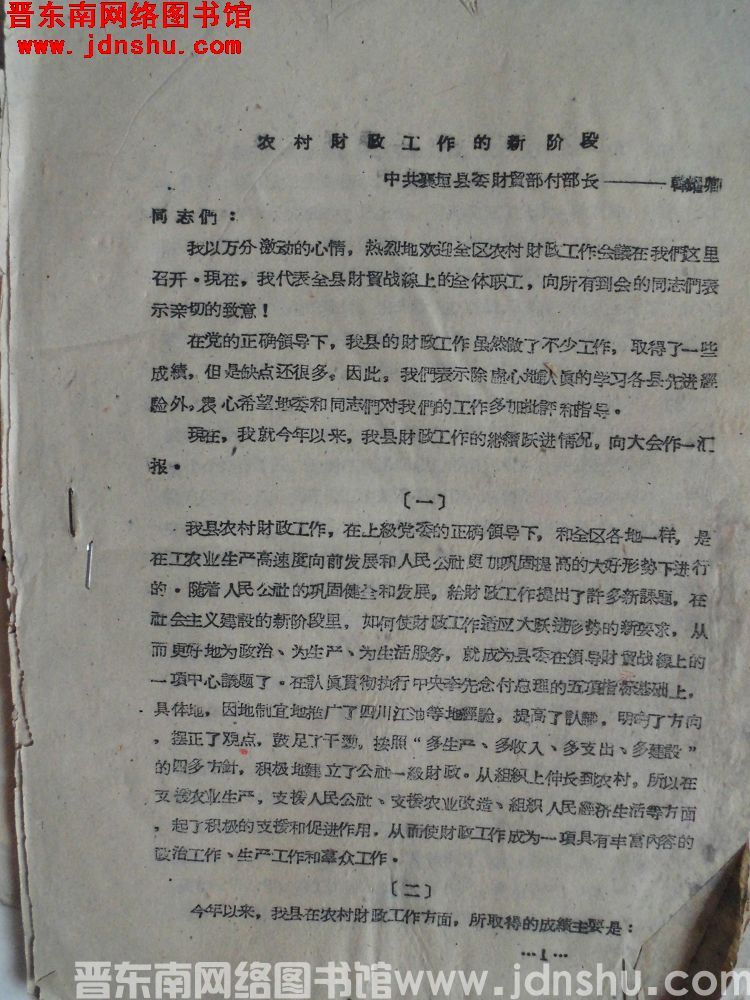 晋东南网络图书馆
www.jdnshu.com
农村財政工作的新阶段
中共襄垣县委財貿部付部长———韓
同志們：
我以万分激动的心情，热烈地欢迎全区农村財政工作会議在我們这里
召开·现在，我代表全县財貿战綫上的全体职工，向所有到会的同志們表
示亲切的致意！
在党的正确領导下，我县的財政工作虽然做了不少工作，取得了一些
成績，但是缺点还很多。因此，我們表示除虚心地认真的学习各县先进經
驗外，衷心希望地委和同志們对我們的工作多加批評和指导。
现在，我就今年以来，我县財政工作的継續跃进情况，向大会作一汇
报·
〔一〕
我县农村財政工作，在上級党委的正确領导下，和全区各地一样，是
在工农业生产高速度向前发展和人民公社更加巩固提高的大好形势下进行
的·随着人民公社的巩固健全和发展，給財政工作提出了許多新課題，在
社会主义建設的新阶段里，如何使財政工作适应大跃进形势的新要求，从
而更好地为政治、为生产、为生活服务，就成为县委在領导財貿战綫上的
一項中心議題了·在認真貫彻执行中央李先念付总理的五項指标基础上，
具体地，因地制宜地推广了四川江油等地經驗，提高了認識，明确了方向
，摆正了观点，鼓足了干劲，按照“多生产、多收入、多支出、多建設”
的四多方針，积极地建立了公社一級財政。从組織上伸长到农村，所以在
支援农业生产，支援人民公社、支援农业改造、組織人民經济生活等方面
，起了积极的支援和促进作用，从而使財政工作成为一項具有丰富內容的
政治工作、生产工作和羣众工作·
〔二〕
今年以来，我县在农村財政工作方面，所取得的成績主要是：
…1…
晋东南网络图书馆 www.jdnshu.com